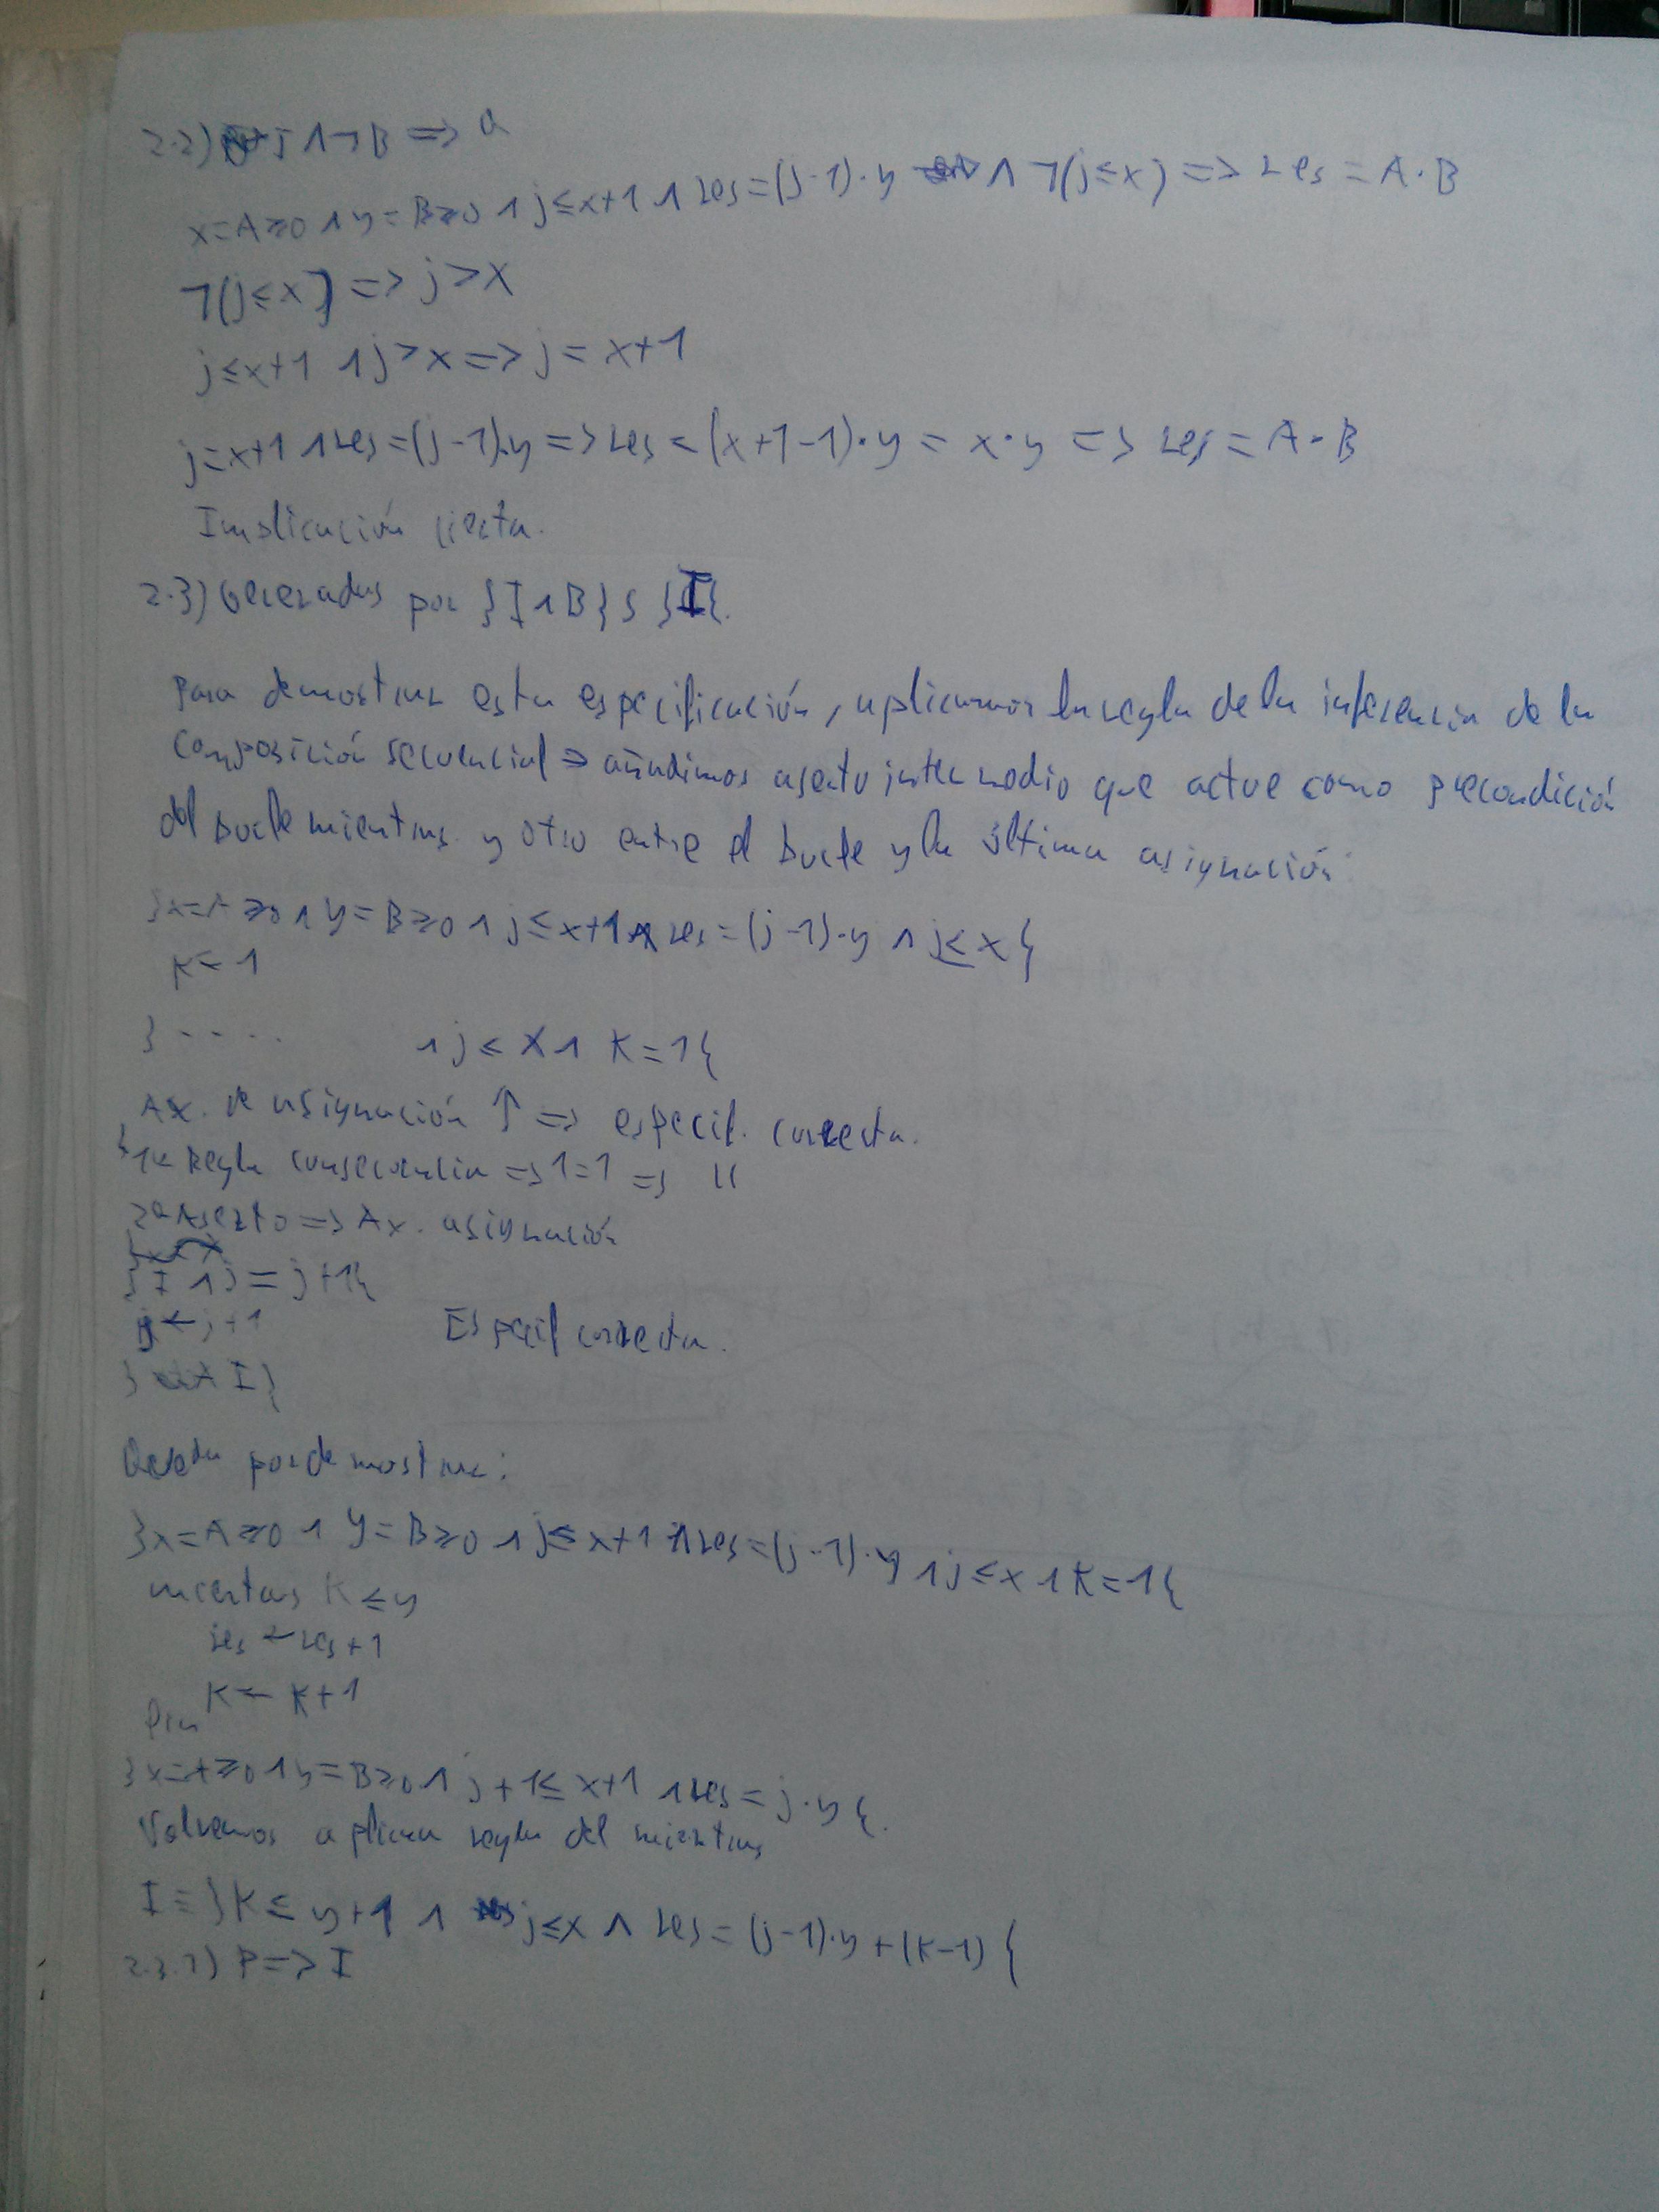 2.2) I ∧ ¬B => Q
x=A≥0 ∧ y=B≥0 ∧ j≤x+1 ∧ res=(j-1)·y ∧ ¬(j≤x) => res = A·B
¬(j≤x) => j>x
j≤x+1 ∧ j>x => j = x+1
j=x+1 ∧ res=(j-1)·y => res = (x+1-1)·y = x·y => res = A·B
Implicación cierta.
2.3) Generadas por }I∧B{ S }I{.
Para demostrar esta especificación, aplicamos la regla de la inferencia de la
composición secuencial => añadimos aserto intermedio que actue como precondición
del bucle mientras y otro entre el bucle y la última asignación:
}x=A≥0 ∧ y=B≥0 ∧ j≤x+1 ∧ res=(j-1)·y ∧ j≤x{
K←1
}..... ∧ j≤x ∧ K=1{
Ax. de asignación ↑ => especif. correcta.
Regla consecuencia => 1=1 => "
2º Aserto => Ax. asignación
}I ∧ j=j+1{
j←j+1 Especif correcta.
}I{
Queda por demostrar:
}x=A≥0 ∧ y=B≥0 ∧ j≤x+1 ∧ res=(j-1)·y ∧ j≤x ∧ K=1{
mientras K≤y
res←res+1
K←K+1
fin
}x=A≥0 ∧ y=B≥0 ∧ j+1≤x+1 ∧ res=j·y{.
Volvemos a aplicar regla del mientras
I≡}K≤y+1 ∧ j≤x ∧ res=(j-1)·y+(K-1){
2.3.1) P=>I